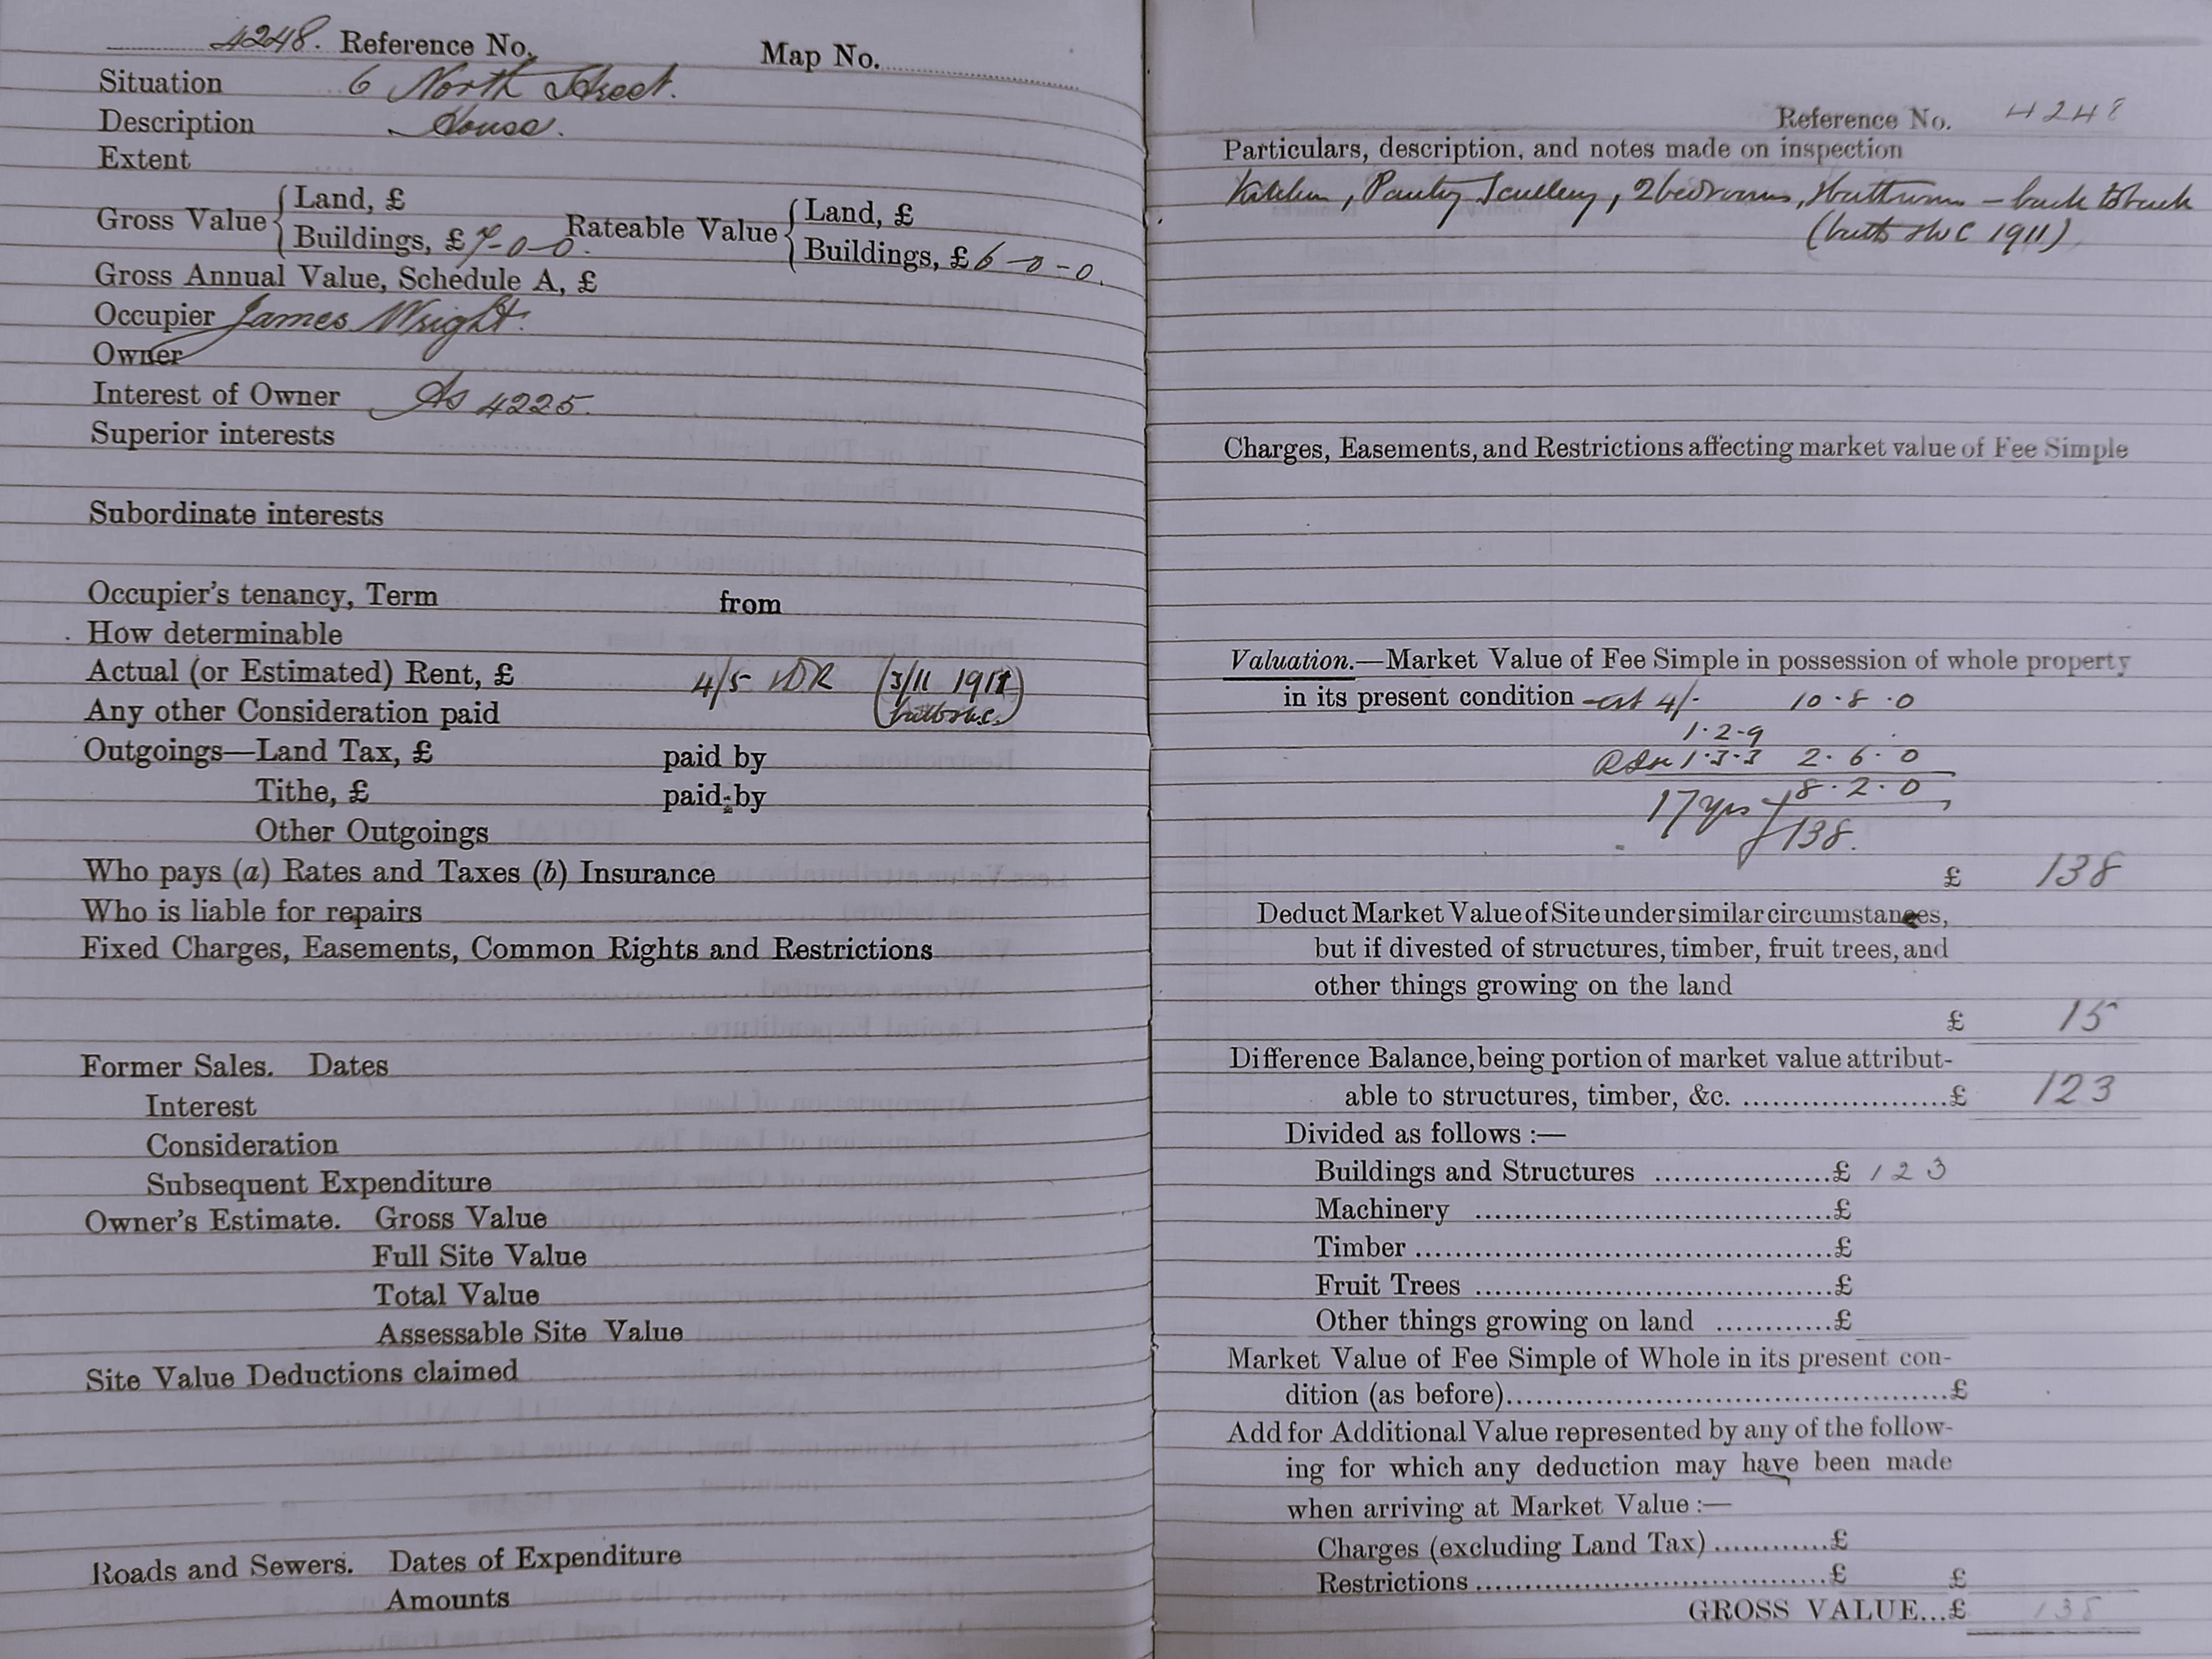 4248. Reference No. Map No.
Situation 6 North Street.
Description House.
Extent
Gross Value { Land, £
Buildings, £ 7-0-0. Rateable Value { Land, £
Buildings, £ 6-0-0.
Gross Annual Value, Schedule A, £
Occupier James Wright.
Owner
Interest of Owner As 4225.
Superior interests
Subordinate interests
Occupier's tenancy, Term from
How determinable
Actual (or Estimated) Rent, £ 4/5 (3/11 1911)
Any other Consideration paid
Outgoings—Land Tax, £ paid by
Tithe, £ paid by
Other Outgoings
Who pays (a) Rates and Taxes (b) Insurance
Who is liable for repairs
Fixed Charges, Easements, Common Rights and Restrictions
Former Sales. Dates
Interest
Consideration
Subsequent Expenditure
Owner's Estimate. Gross Value
Full Site Value
Total Value
Assessable Site Value
Site Value Deductions claimed
Roads and Sewers. Dates of Expenditure
Amounts
Reference No. 4248
Particulars, description, and notes made on inspection
Kitchen, Pantry Scullery, 2 bedrooms, - back to back
1911)
Charges, Easements, and Restrictions affecting market value of Fee Simple
Valuation.—Market Value of Fee Simple in possession of whole property
in its present condition at 4/- 10.8.0
1.2.9
1.3.3 2.6.0
8.2.0
17 yrs
138.
£ 138
Deduct Market Value of Site under similar circumstances,
but if divested of structures, timber, fruit trees, and
other things growing on the land
£ 15
Difference Balance, being portion of market value attribut-
able to structures, timber, &c. ....................£ 123
Divided as follows :—
Buildings and Structures ..................£ 123
Machinery ....................................£
Timber ..........................................£
Fruit Trees ....................................£
Other things growing on land ............£
Market Value of Fee Simple of Whole in its present con-
dition (as before).............................................£
Add for Additional Value represented by any of the follow-
ing for which any deduction may have been made
when arriving at Market Value :—
Charges (excluding Land Tax) ............£
Restrictions ....................................£ £
GROSS VALUE...£ 138